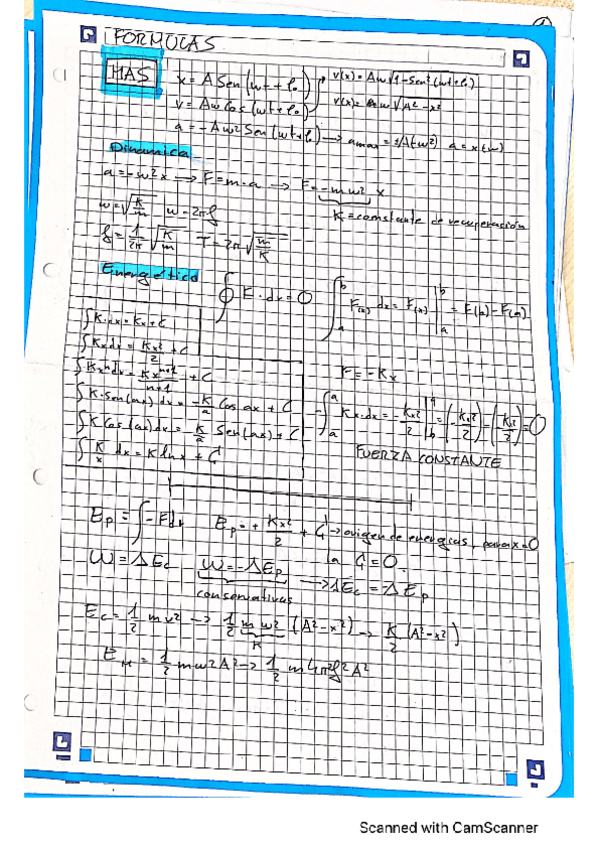 FORMULAS
MAS
x = A Sen (wt + φ₀)
v(x) = Aw√1-Sen²(wt+φ₀)
v = Aw Cos (wt + φ₀)
v(x) = w√A²-x²
a = -Aw² Sen (wt+φ₀) → amax = ±A(w²) a = x(w)
Dinámica
a = -w²x → F = m·a → F = -mw² x
w = √K/m w = 2πf
K = constante de recuperación
f = 1/2π √K/m T = 2π √m/K
Energético
∮ F·dx = 0
∫ₐᵇ F(x) dx = F(x) |ₐᵇ = F(b) - F(a)
∫K·dx = Kx + C
∫Kx dx = Kx²/2 + C
∫Kxⁿdx = Kxⁿ⁺¹/n+1 + C
F = -Kx
∫K·Sen(ax) dx = -K/a Cos ax + C
∫K Cos(ax)dx = -K/a Sen(ax) + C
∫K/x dx = K lnx + C
-∫ₐᵃ Kx·dx = -Kx²/2 | = (-Kx²/2) - (-Kx²/2) = 0
FUERZA CONSTANTE
Ep = ∫-Fdx Ep = + Kx²/2 + C → origen de energías, para x=0
la C = 0.
W = ΔEc W = -ΔEp → ΔEc = Δ Ep
conservativas
Ec = 1/2 mv² → 1/2 mw² (A²-x²) → K/2 (A²-x²)
K
EM = 1/2 mw²A² → 1/2 m4π²f²A²
Scanned with CamScanner